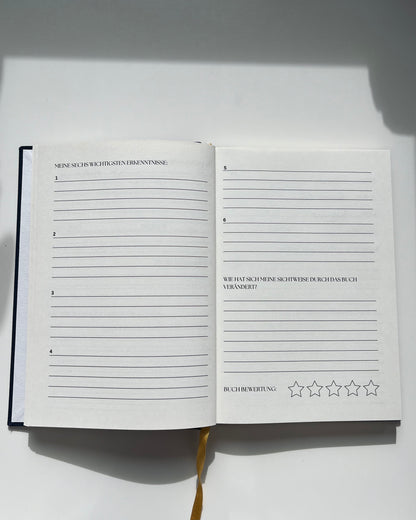 MEINE SECHS WICHTIGSTEN ERKENNTNISSE:
1
2
3
4
5
6
WIE HAT SICH MEINE SICHTWEISE DURCH DAS BUCH
VERÄNDERT?
BUCH BEWERTUNG: